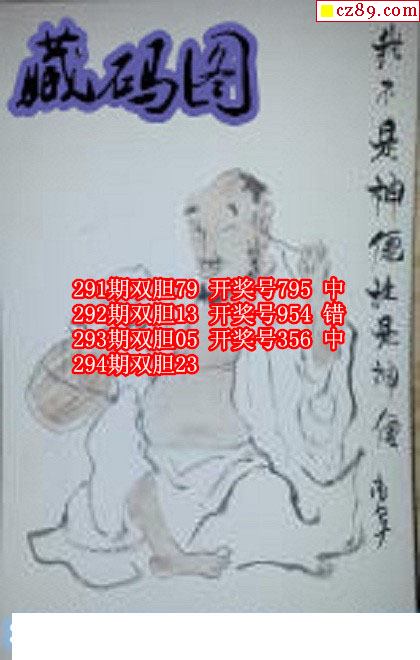 cz89.com
藏码图
我不是神仙却是神仙
291期双胆79 开奖号795 中
292期双胆13 开奖号954 错
293期双胆05 开奖号356 中
294期双胆23